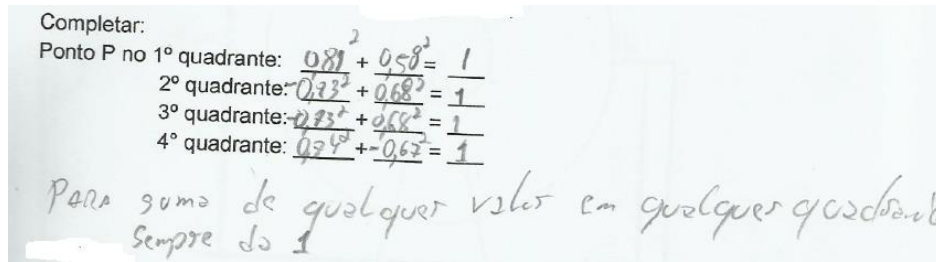 Completar:
Ponto P no 1º quadrante: 0,81² + 0,58² = 1
2º quadrante: -0,73² + 0,68² = 1
3º quadrante: -0,73² + 0,68² = 1
4º quadrante: 0,74² + -0,67² = 1
PARA soma de qualquer valor em qualquer quadrante
sempre da 1